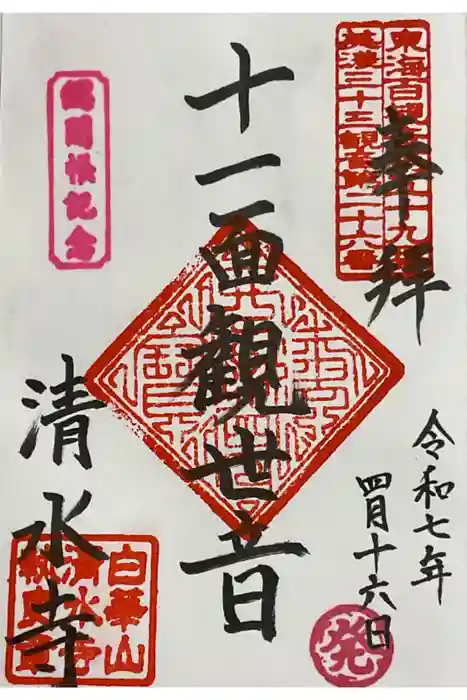 奉拝
東海百観
十九
美濃三十三観音第二十六番
令和七年
四月十六日
発
十一面観世音
開帳記念
清水寺
白華山
清水寺